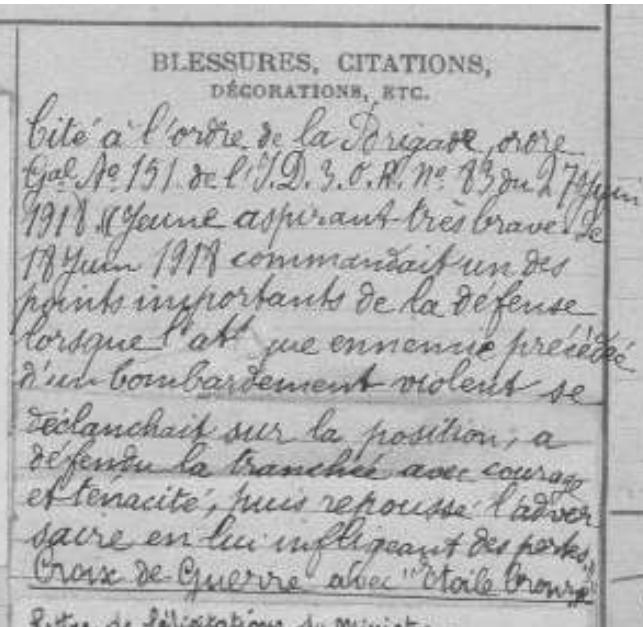 BLESSURES, CITATIONS,
DÉCORATIONS, ETC.
Cité à l'ordre de la Brigade, ordre
Gal No 151 de l'I.D. 3. O.R. No 83 du 27 Juin
1918 "Jeune aspirant très brave. Le
18 Juin 1918 commandait un des
points importants de la défense
lorsque l'att que ennemie précédée
d'un bombardement violent se
déclanchait sur la position, a
défendu la tranchée avec courage
et ténacité, puis repoussé l'adver
saire en lui infligeant des pertes."
Croix de Guerre avec "Étoile bronze"
Lettre de félicitations du Ministre